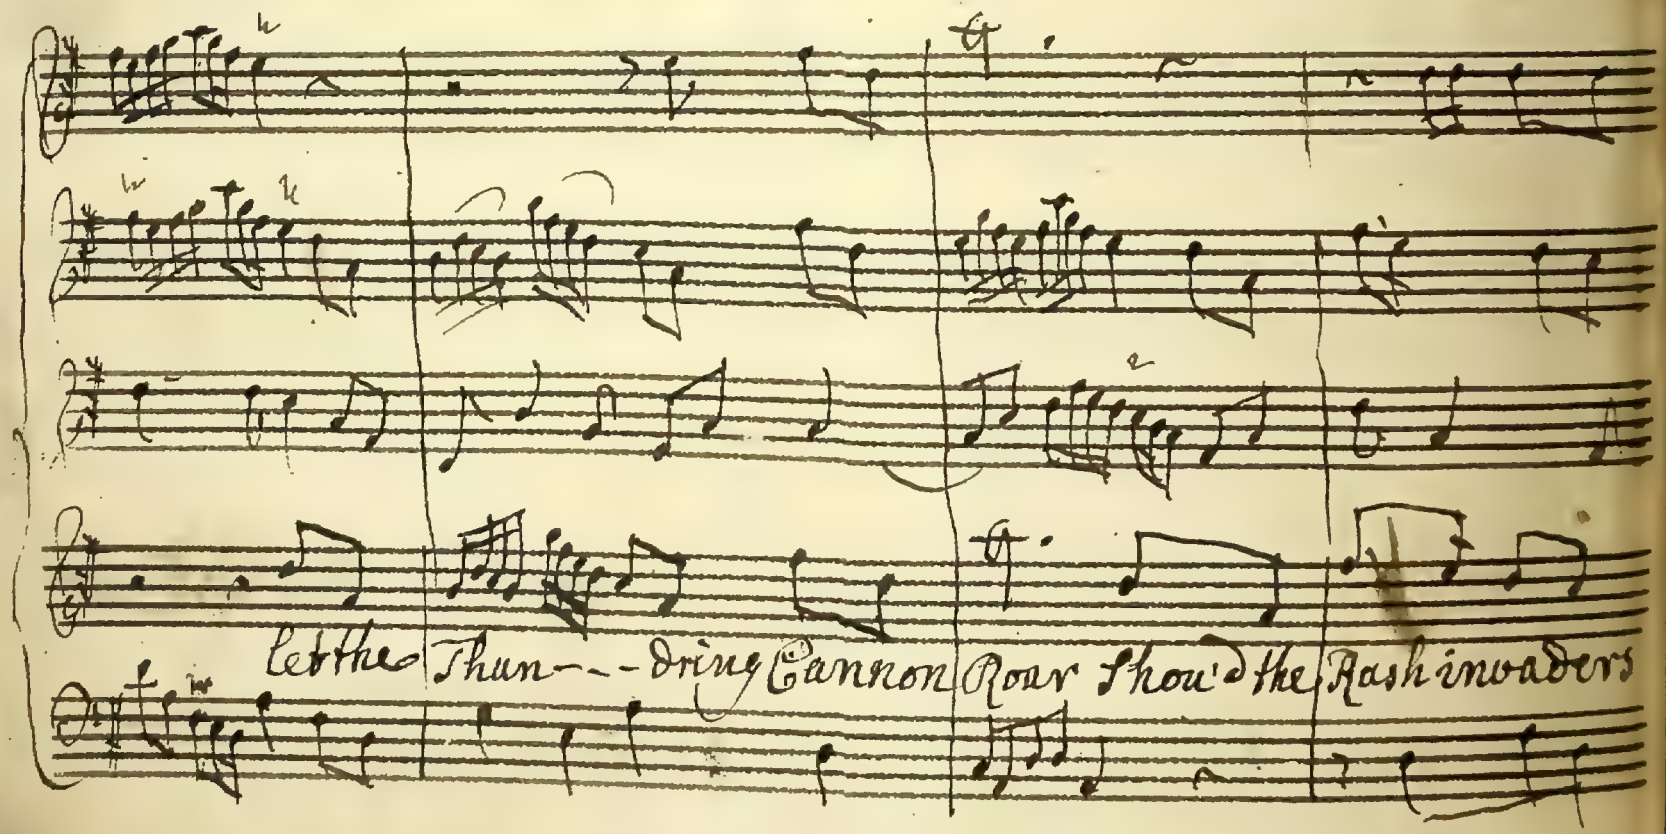 let the Thun---dring Cannon Roar Shou'd the Rash invaders